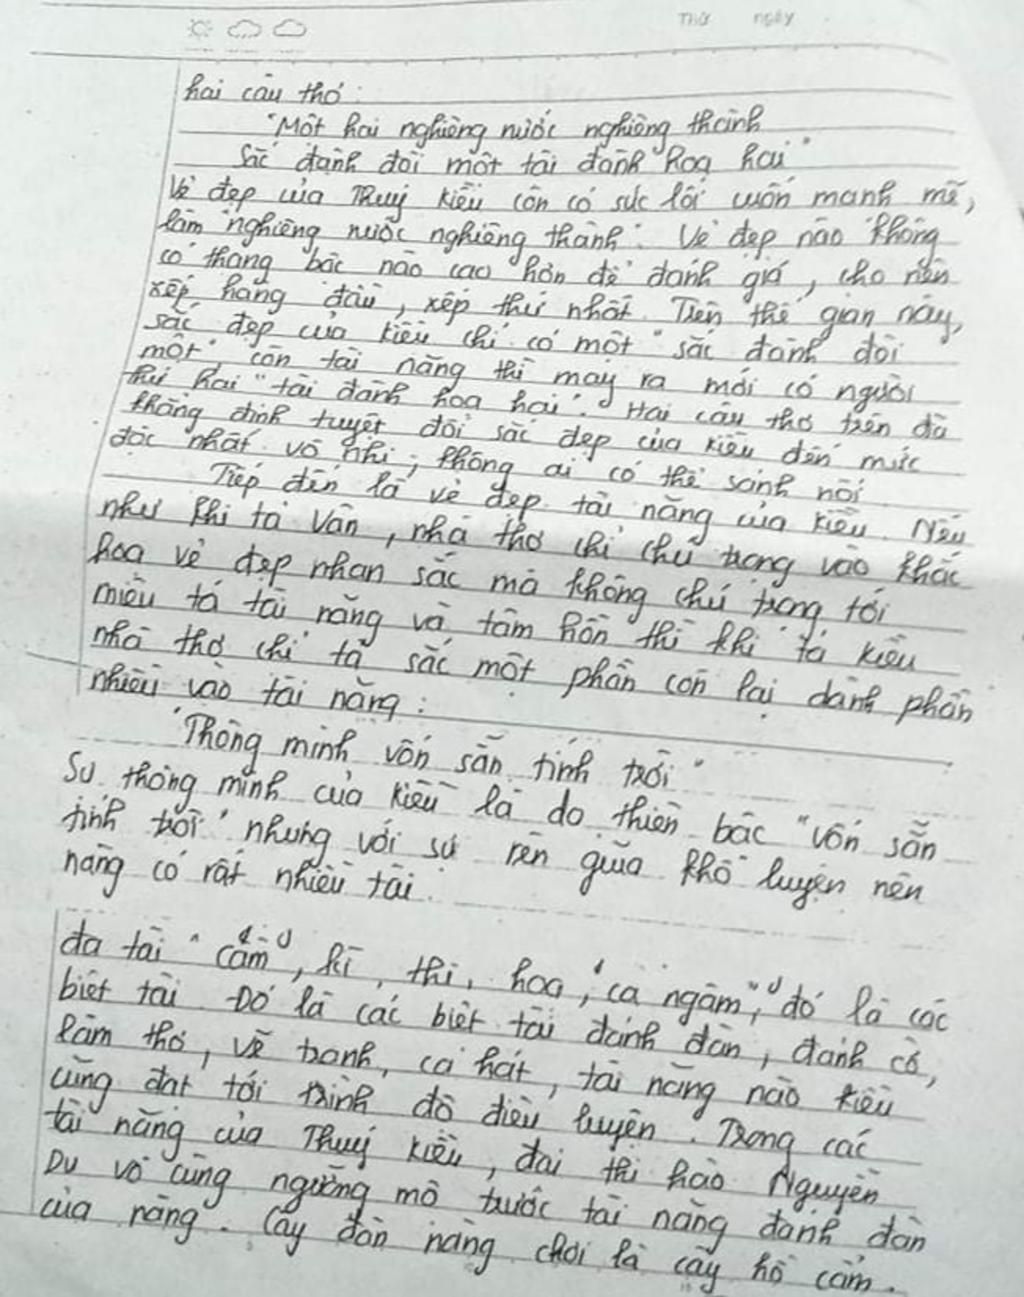 Thứ ngày
hai câu thơ:
"Một hai nghiêng nước nghiêng thành
Sắc đành đòi một tài đành hoạ hai"
Vẻ đẹp của Thuý Kiều còn có sức lôi cuốn mạnh mẽ,
làm "nghiêng nước nghiêng thành". Vẻ đẹp nào không
có thang bậc nào cao hơn để đánh giá, cho nên
xếp hàng đầu, xếp thứ nhất. Tiên thế gian này,
sắc đẹp của Kiều chỉ có một "sắc đành đòi
một", còn tài năng thì may ra mới có người
thứ hai "tài đành hoạ hai". Hai câu thơ trên đã
khẳng định tuyệt đối sắc đẹp của Kiều đến mức
độc nhất vô nhị, không ai có thể sánh nổi
Tiếp đến là vẻ đẹp tài năng của Kiều. Nếu
như khi tả Vân, nhà thơ chỉ chú trọng vào khắc
hoạ vẻ đẹp nhan sắc mà không chú trọng tới
miêu tả tài năng và tâm hồn thì khi tả Kiều
nhà thơ chỉ tả sắc một phần còn lại dành phần
nhiều vào tài năng:
"Thông minh vốn sẵn tính trời"
Sự thông minh của Kiều là do thiên bậc "vốn sẵn
tính trời" nhưng với sự rèn giũa khổ luyện nên
nàng có rất nhiều tài.
đa tài "cầm", kì, thi, hoạ, "ca ngâm", đó là các
biệt tài. Đó là các biệt tài đánh đàn, đánh cờ,
làm thơ, vẽ tranh, ca hát, tài năng nào Kiều
cũng đạt tới trình độ điêu luyện. Trong các
tài năng của Thuý Kiều, đại thi hào Nguyễn
Du vô cùng ngưỡng mộ trước tài năng đánh đàn
của nàng. Cây đàn nàng chơi là cây hồ cầm.